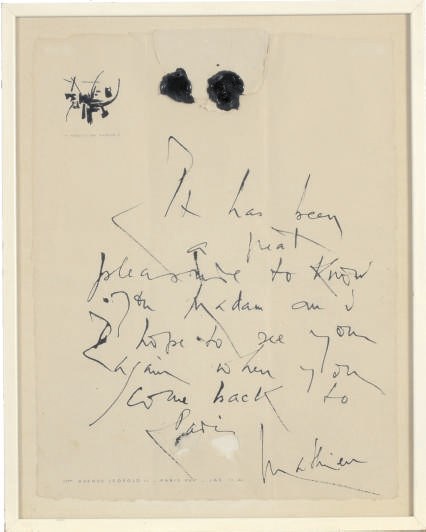 It has been
a great
pleasure to know
you Madam and
I hope to see you
again when you
come back to
Paris
Mathieu
AVENUE LEOPOLD II - PARIS